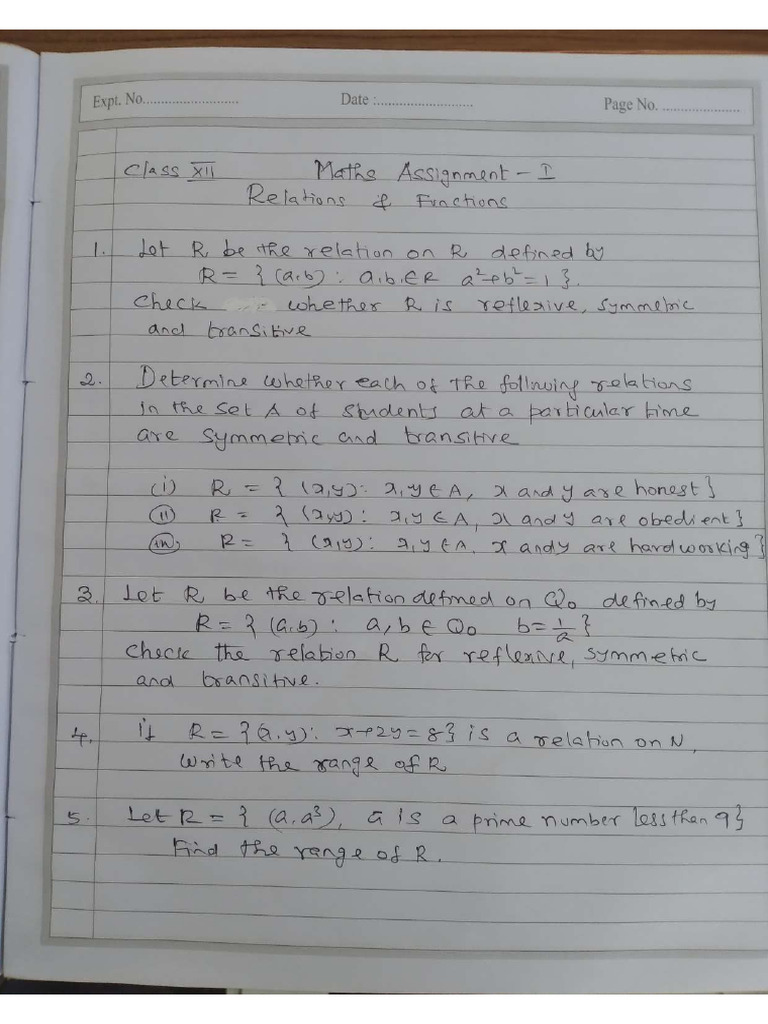 Expt. No.......................... Date :.......................... Page No. .....................
Class XII Maths Assignment - I
Relations & Functions
1. Let R be the relation on R defined by
R = { (a,b) : a,b ∈ R a²+b²=1 }.
Check whether R is reflexive, symmetric
and transitive
2. Determine whether each of the following relations
in the set A of students at a particular time
are symmetric and transitive
(i) R = { (x,y) : x,y ∈ A, x and y are honest}
(ii) R = { (x,y) : x,y ∈ A, x and y are obedient}
(iii) R = { (x,y) : x,y ∈ A, x and y are hardworking}
3. Let R be the relation defined on Q₀ defined by
R = { (a,b) : a,b ∈ Q₀ b = 1/a }
Check the relation R for reflexive, symmetric
and transitive.
4. if R = {(x,y) : x+2y = 8} is a relation on N,
Write the range of R
5. Let R = { (a,a³), a is a prime number less than 9}
Find the range of R.